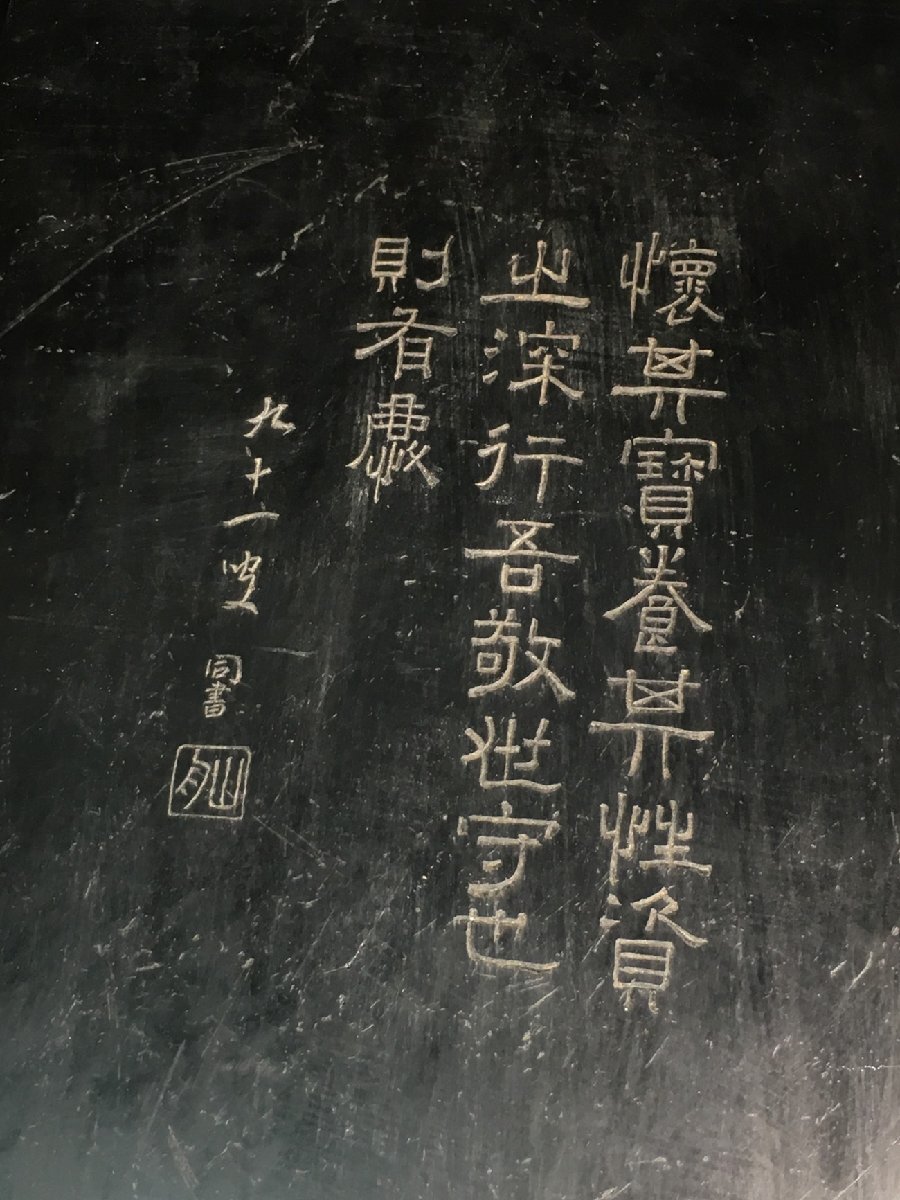 懷其寶養其性資
之深行吾敬世守也
則有慶
九十二叟
同書
山舟